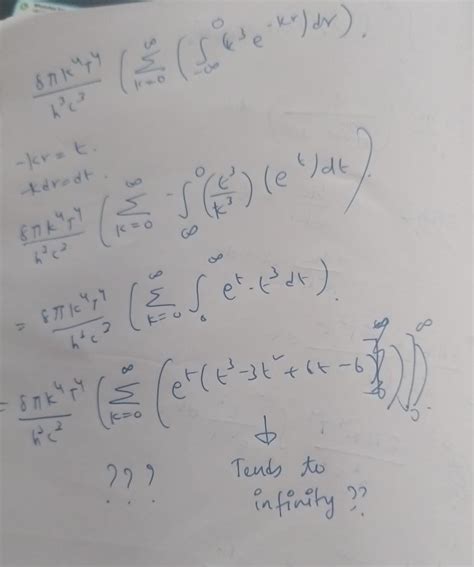 8πk⁴T⁴/h³c³ (∑_{k=0}^{∞} (∫_{-∞}^{0} t³ e^{-kr}) dr).
-kr = t.
-kdr = dt.
8πk⁴T⁴/h³c² (∑_{k=0}^{∞} -∫_{∞}^{0} (t³/k³) (e^t) dt).
= 8πk⁴T⁴/h³c² (∑_{k=0}^{∞} ∫_{0}^{∞} e^t - t³ dt).
= 8πk⁴T⁴/h³c² (∑_{k=0}^{∞} (e^t (t³ - 3t² + 6t - 6)))₀^∞
↓
??? Tends to
infinity ??